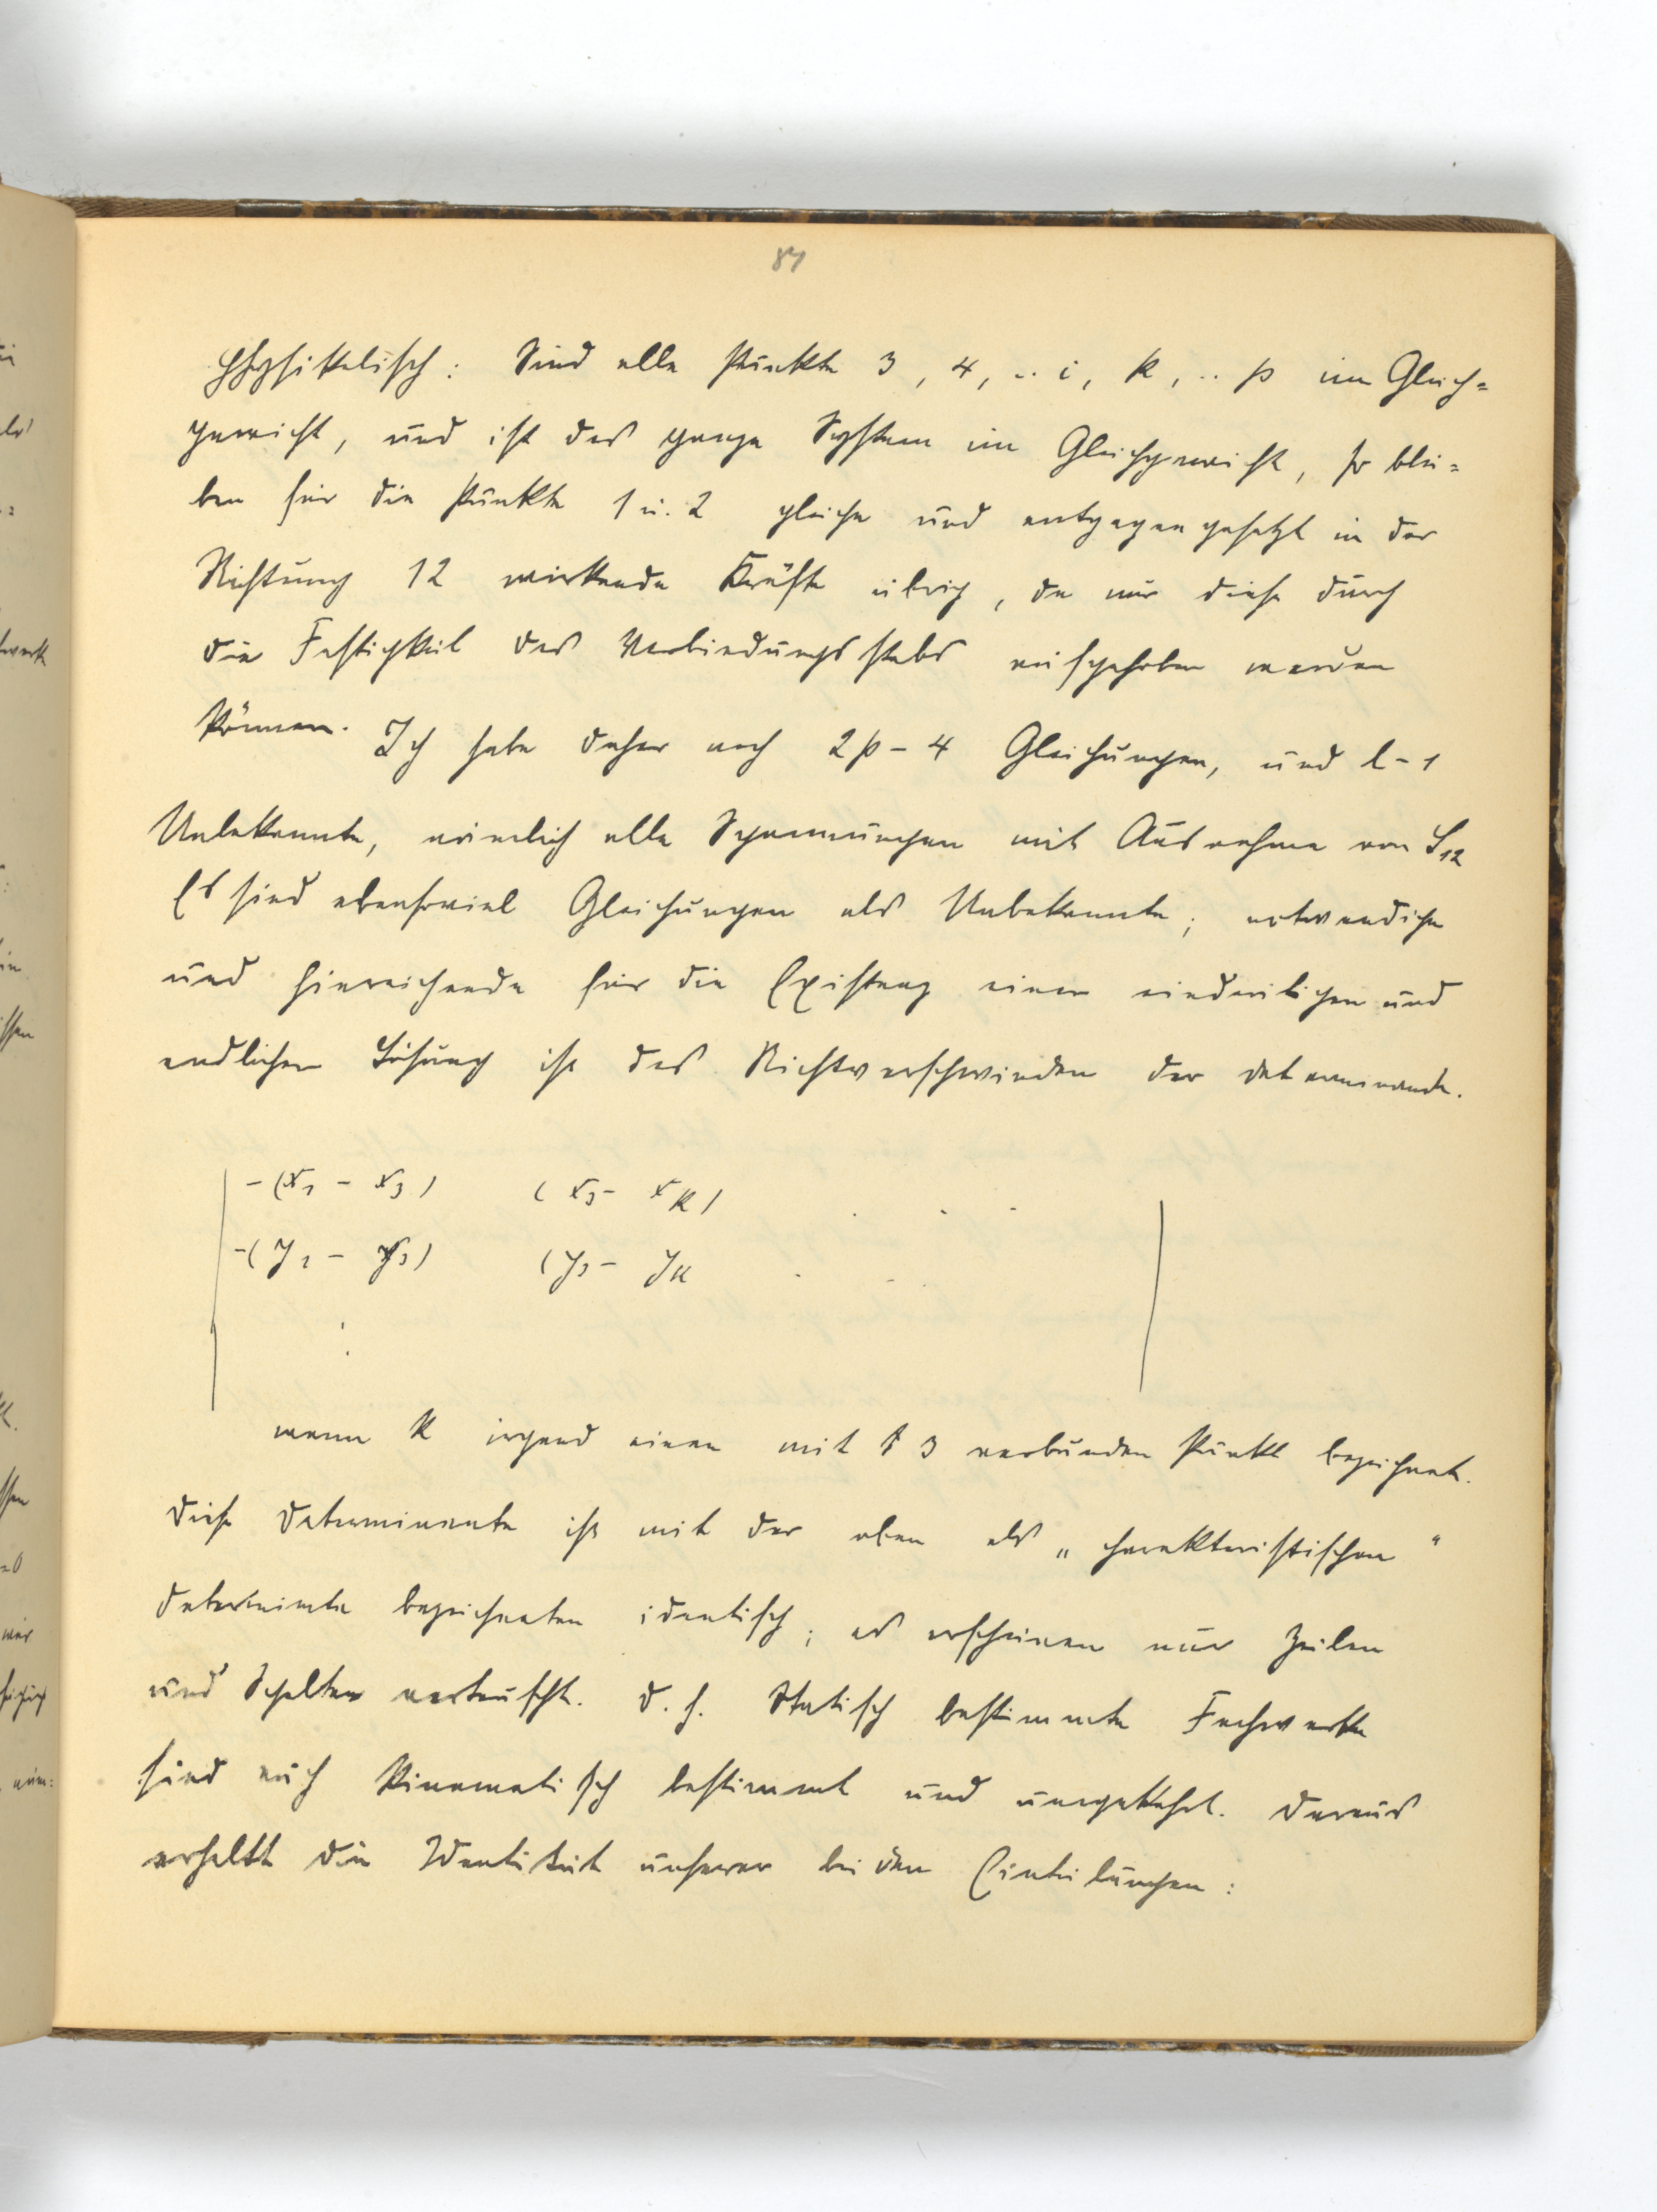 87
Physikalisch: Sind alle Punkte 3, 4, .. i, k, .. p im Gleich=
gewicht, und ist das ganze System im Gleichgewicht, so blei=
ben für die Punkte 1 u. 2 gleiche und entgegengesetzt in der
Richtung 12 wirkende Kräfte übrig, da nur diese durch
die Festigkeit des Verbindungsstabs aufgehoben werden
können. Ich habe daher noch 2p - 4 Gleichungen, und l - 1
Unbekannte, nämlich alle Spannungen mit Ausnahme von S₁₂
Es sind ebensoviel Gleichungen als Unbekannte; notwendige
und hinreichende für die Existenz einer eindeutigen und
endlichen Lösung ist das Nichtverschwinden der Determinante.
-(x₁ - x₃) (x₃ - xₖ) . . .
-(y₁ - y₃) (y₃ - yₖ . . .
wenn k irgend einen mit 3 verbunden Punkt bezeichnet.
Diese Determinante ist mit der oben als „charakteristischen“
Determinte bezeichneten identisch; es erscheinen nur Zeilen
und Spalten vertauscht. D. h. Statisch bestimmte Fachwerke
sind auch kinematisch bestimmt und umgekehrt. Daraus
erhellt die Identität unserer beiden Einteilungen: